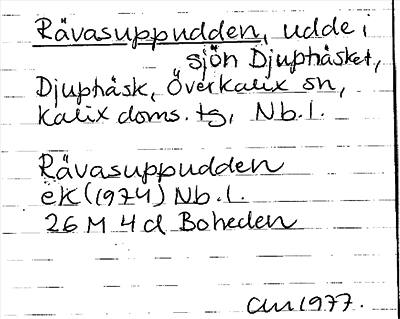 Rävasuppudden, udde i
sjön Djupträsket,
Djupträsk, Överkalix sn,
Kalix doms. tg, Nb.l.
Rävasuppudden
ek (1974) Nb.l.
26 M 4d Boheden
1977.